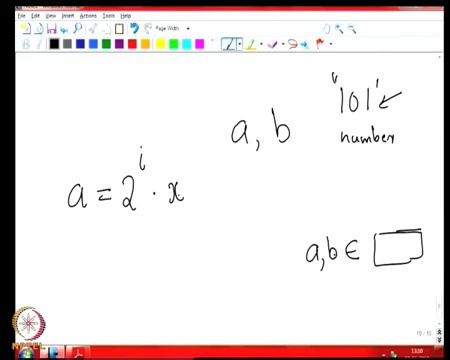 File Edit View Insert Actions Tools Help
Page Width
"101"
a, b
number
a = 2^i · x
a, b ∈
10 / 10
13:10